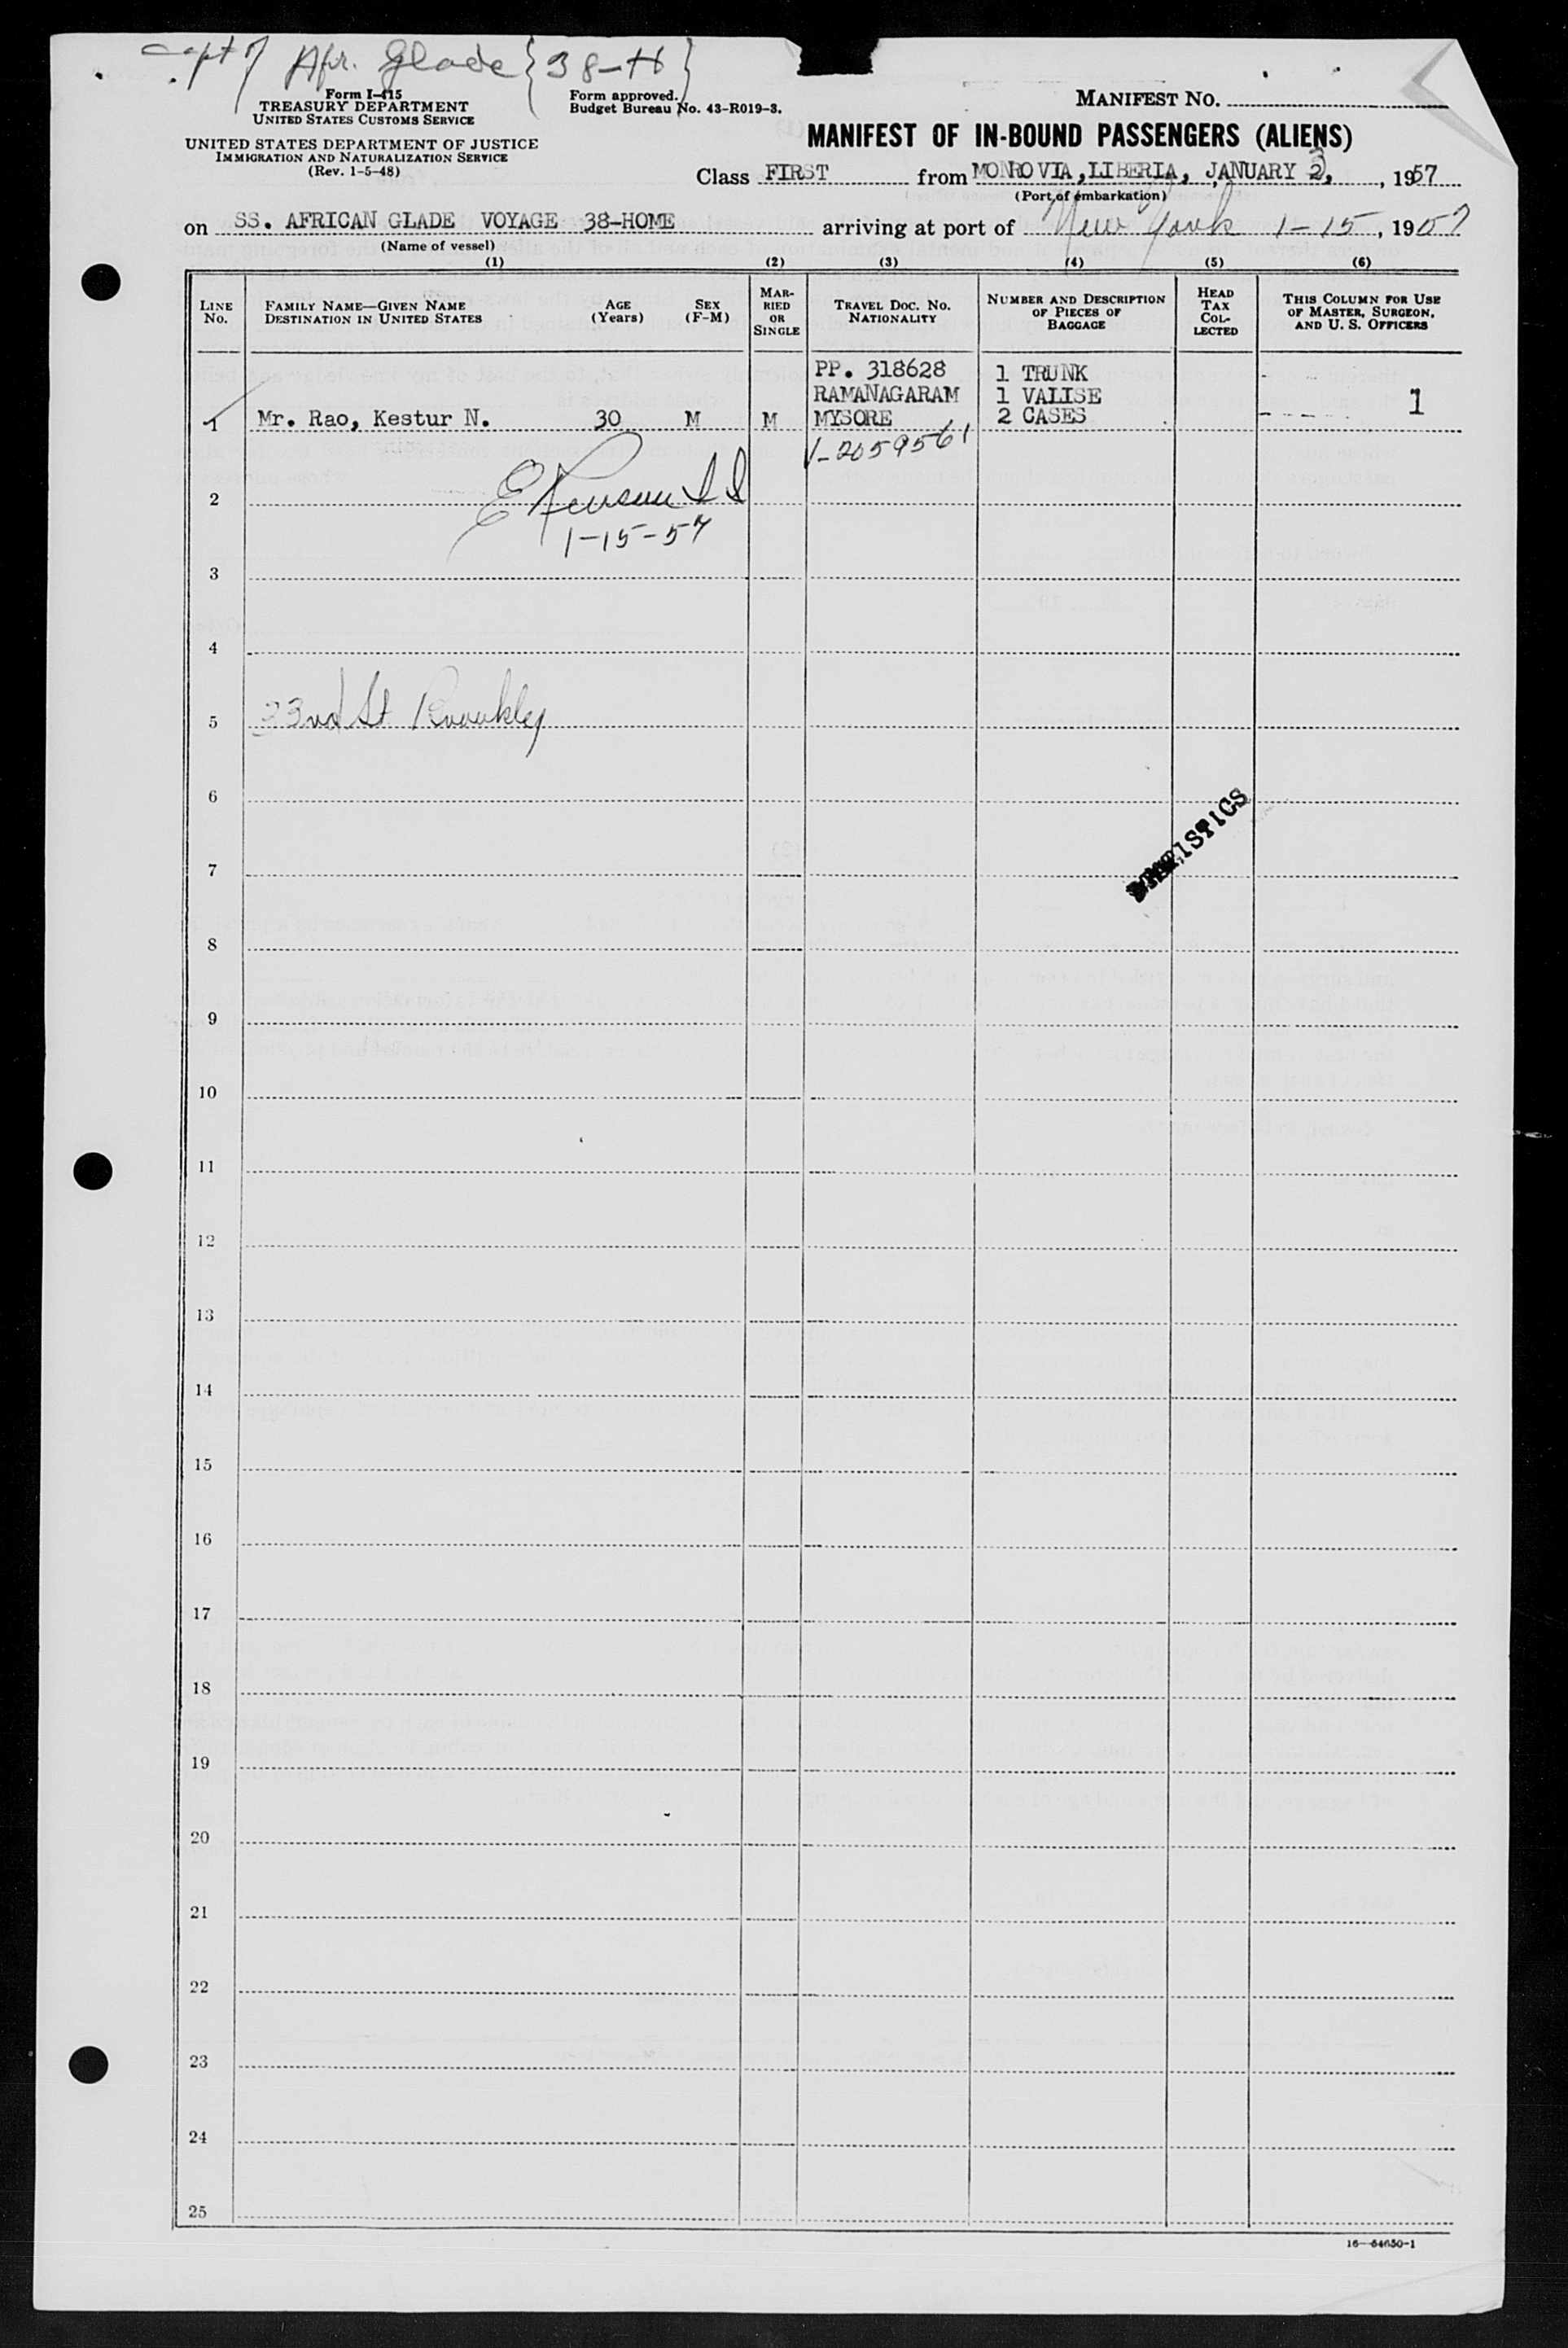 Afr. Glade {38-H}
Form I-415
TREASURY DEPARTMENT
UNITED STATES CUSTOMS SERVICE
UNITED STATES DEPARTMENT OF JUSTICE
IMMIGRATION AND NATURALIZATION SERVICE
(Rev. 1-5-48)
Form approved.
Budget Bureau No. 43-R019-3.
MANIFEST NO.
MANIFEST OF IN-BOUND PASSENGERS (ALIENS)
Class FIRST from MONROVIA, LIBERIA, JANUARY 3, 1957
(Port of embarkation)
on SS. AFRICAN GLADE VOYAGE 38-HOME arriving at port of New York 1-15, 1957
(Name of vessel)
(1) (2) (3) (4) (5) (6)
LINE NO.
FAMILY NAME—GIVEN NAME
DESTINATION IN UNITED STATES
AGE
(Years)
SEX
(F-M)
MAR-
RIED
OR
SINGLE
TRAVEL DOC. NO.
NATIONALITY
NUMBER AND DESCRIPTION
OF PIECES OF
BAGGAGE
HEAD
TAX
COL-
LECTED
THIS COLUMN FOR USE
OF MASTER, SURGEON,
AND U. S. OFFICERS
PP. 318628 1 TRUNK
RAMANAGARAM 1 VALISE
1 Mr. Rao, Kestur N. 30 M M MYSORE 2 CASES 1
V-2059561
2
1-15-57
3
4
5 23nd St
6
STATISTICS
7
8
9
10
11
12
13
14
15
16
17
18
19
20
21
22
23
24
25
16—54650-1